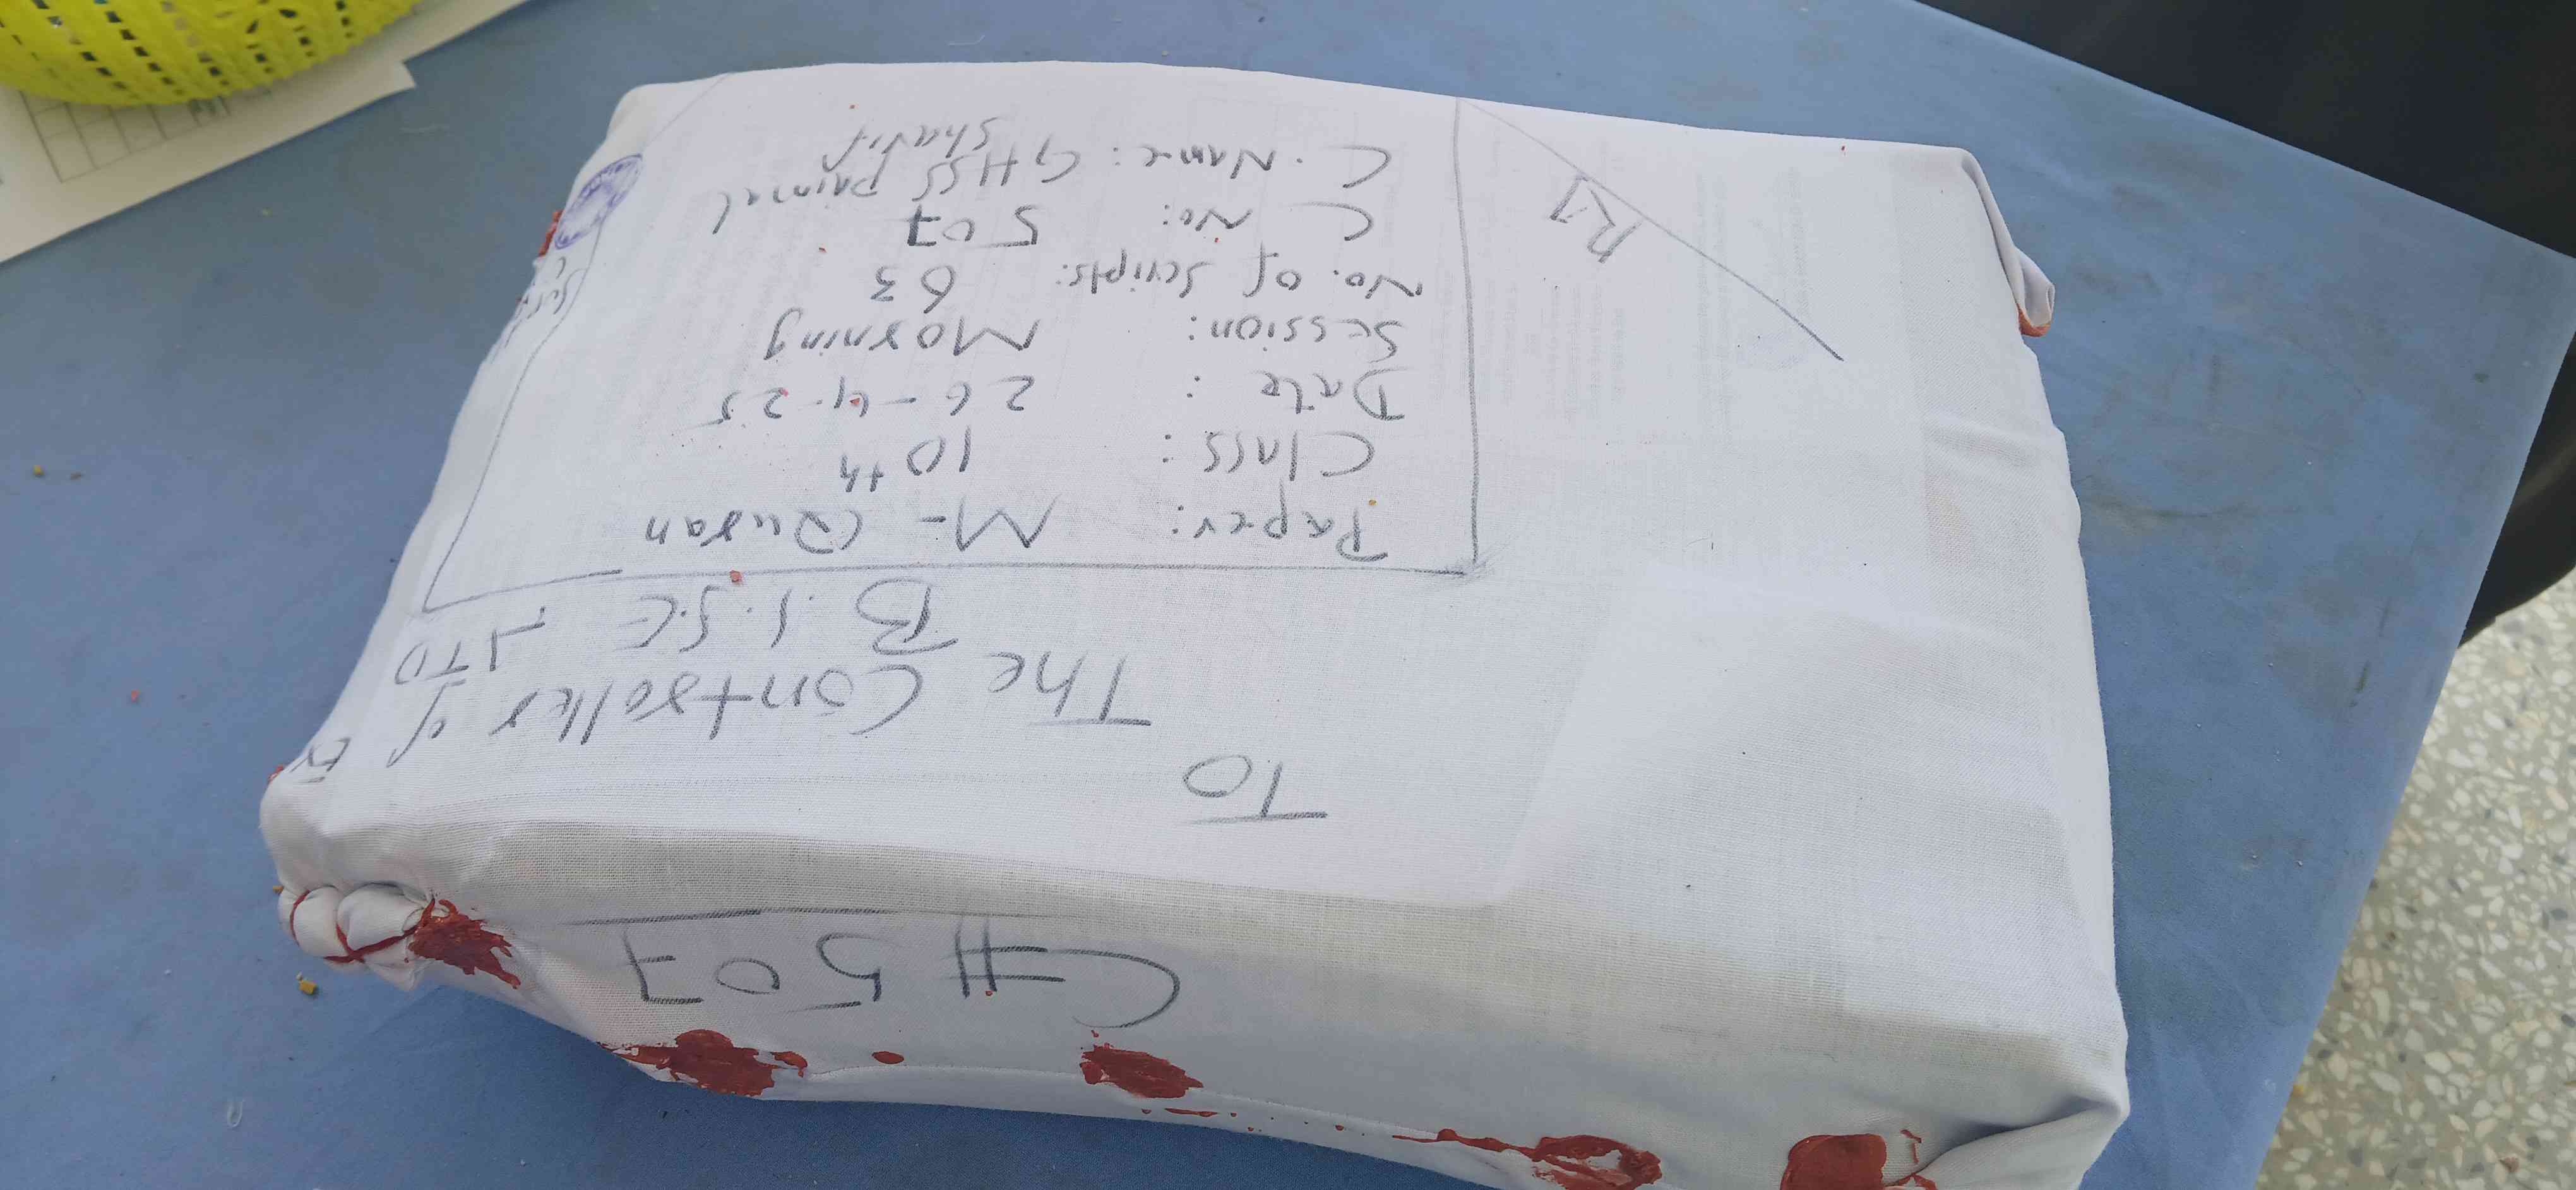 C# 507
To
The Controller of Ex
B.I.S.E ATD
Paper: M- Quran
Class: 10th
Date: 26-4-25
Session: Morning
No. of Scripts: 63
C No: 507
C. Name: GHSS
Sharif